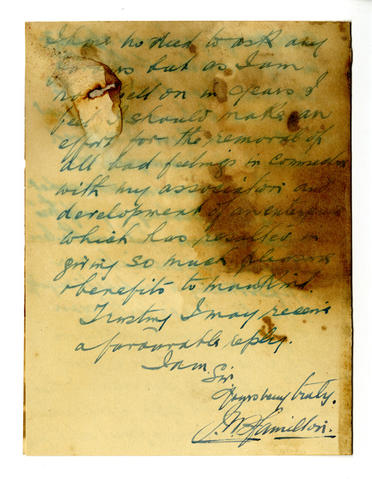 I have no need to ask any
favours but as I am
now well on in years I
feel I should make an
effort for the removal of
all bad feelings in connection
with my association and
development of an enterprise
which has resulted in
giving so much pleasure
& benefits to mankind.
Trusting I may receive
a favourable reply.
I am
Sir
Yours very truly.
J. W. Hamilton.